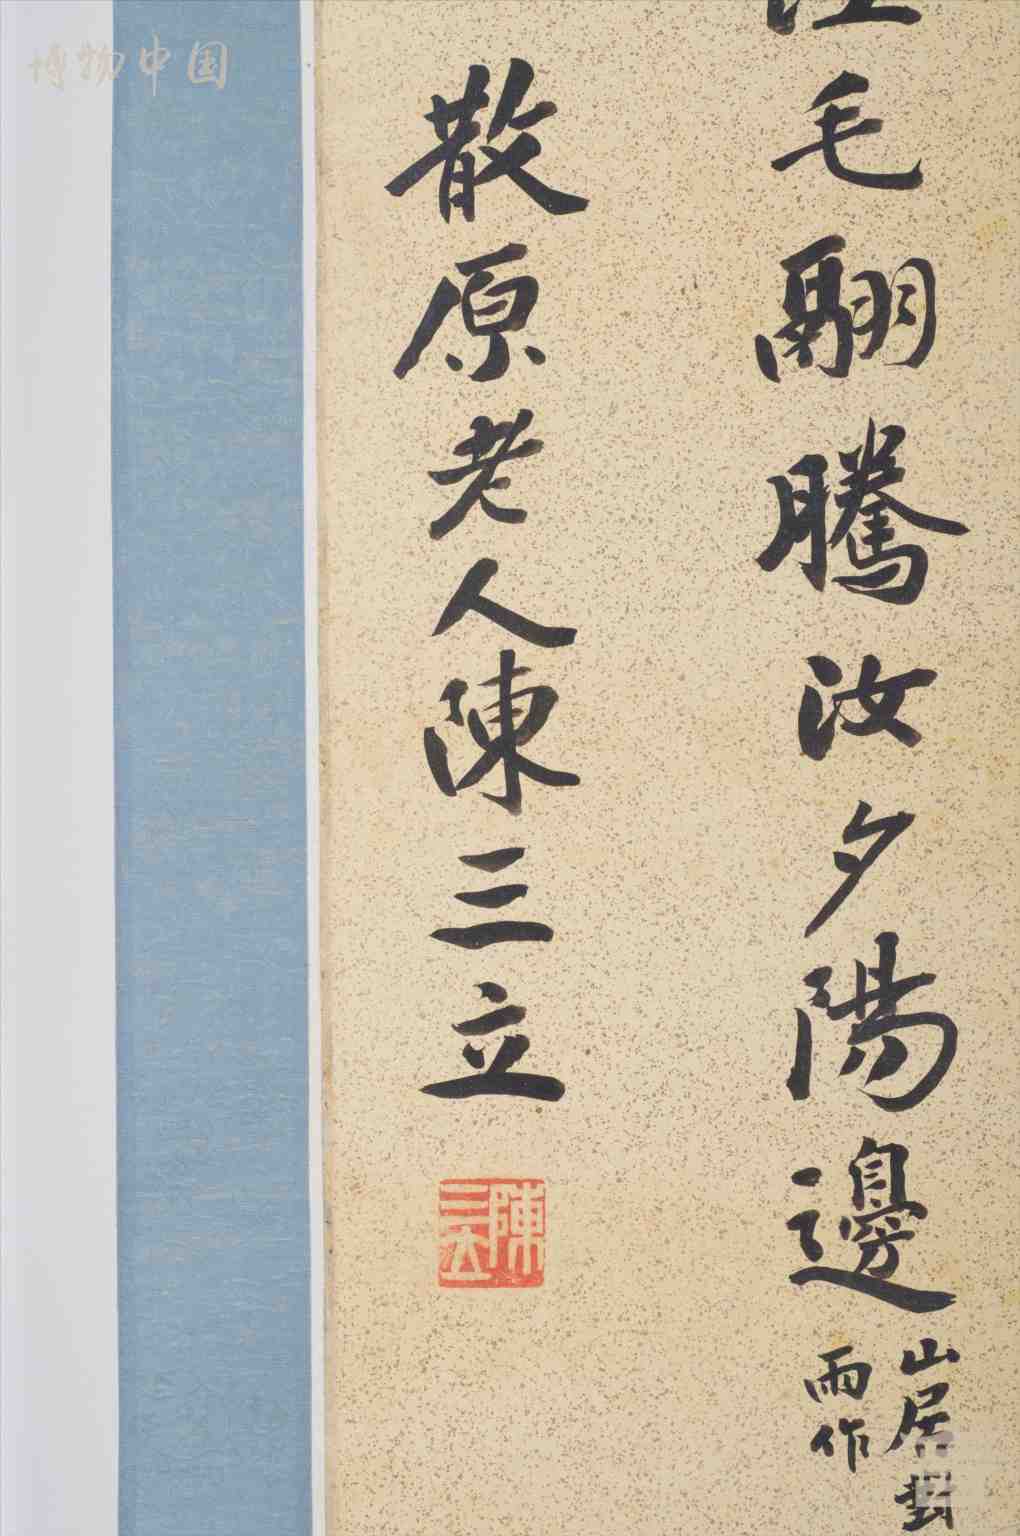 毛翮騰汝夕陽邊
山居對
雨作
散原老人陳三立
陳三立
博物中国